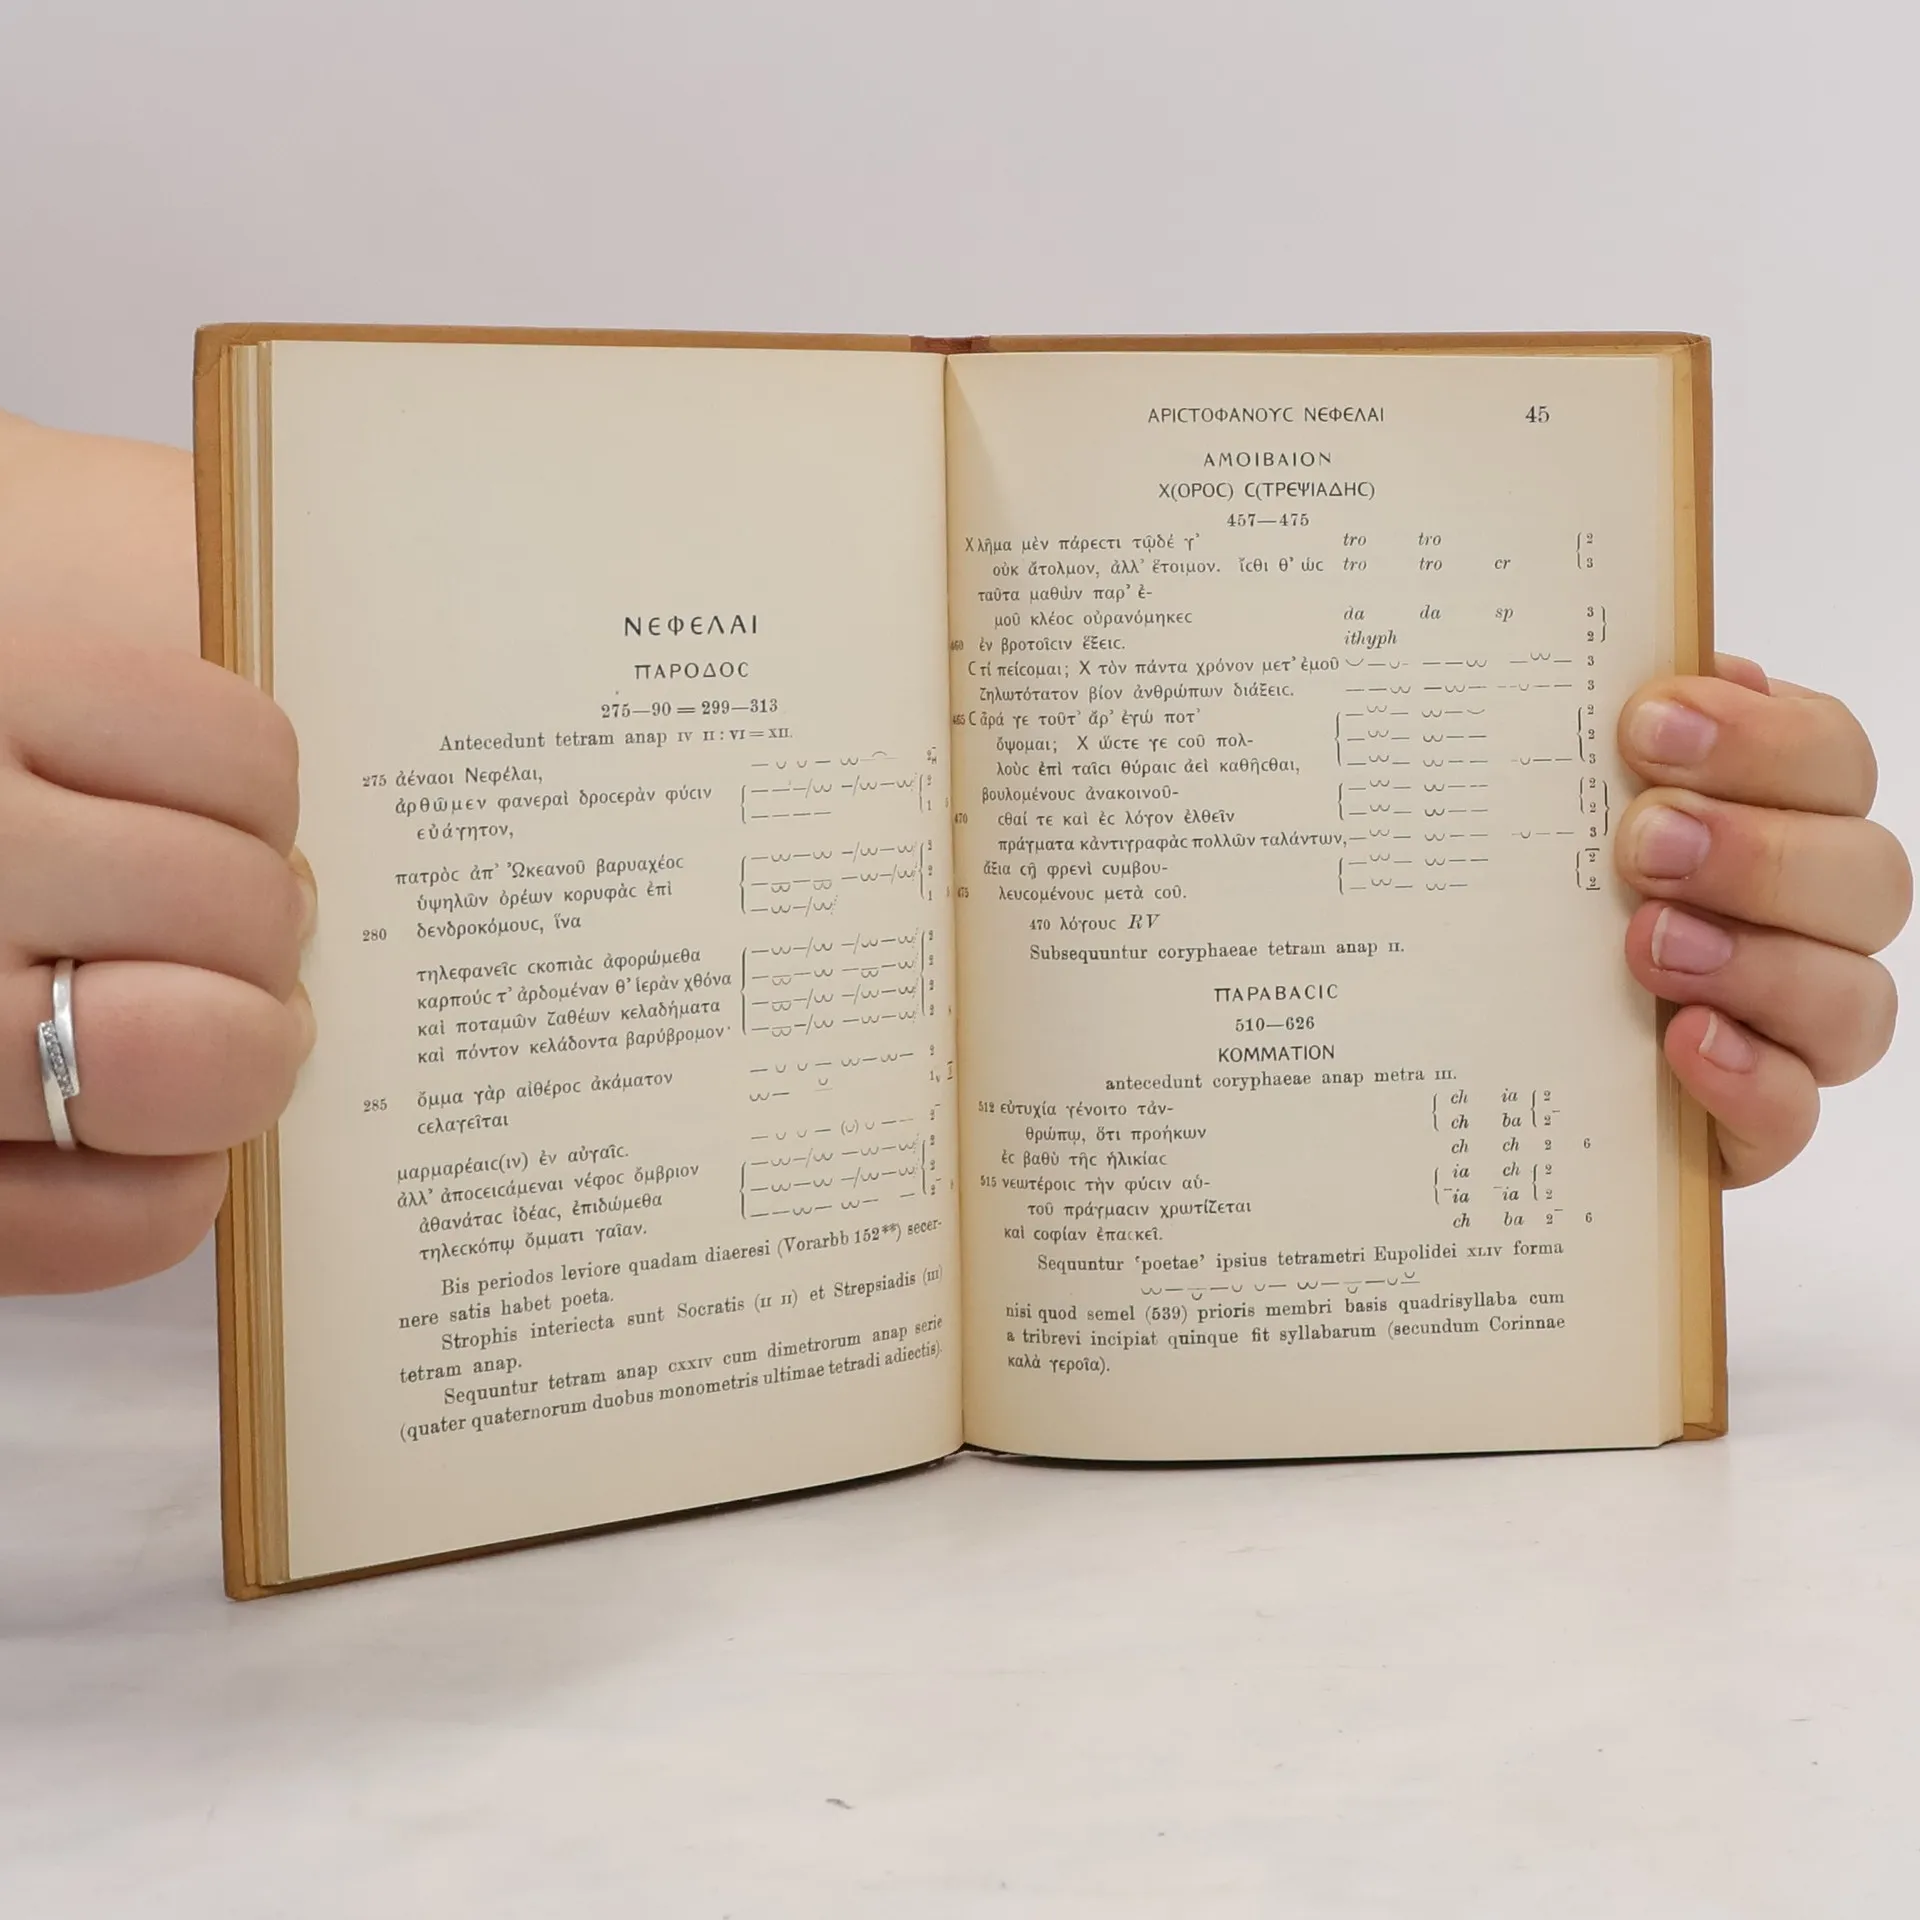 ΝΕΦΕΛΑΙ
ΠΑΡΟΔΟϹ
275—90 = 299—313
Antecedunt tetram anap IV II : VI = XII.
275 ἀέναοι Νεφέλαι,
ἀρθῶμεν φανεραὶ δροϲερὰν φύϲιν
εὐάγητον,
πατρὸϲ ἀπ' Ὠκεανοῦ βαρυαχέοϲ
ὑψηλῶν ὀρέων κορυφὰϲ ἐπὶ
280 δενδροκόμουϲ, ἵνα
τηλεφανεῖϲ ϲκοπιὰϲ ἀφορώμεθα
καρπούϲ τ' ἀρδομέναν θ' ἱερὰν χθόνα
καὶ ποταμῶν ζαθέων κελαδήματα
καὶ πόντον κελάδοντα βαρύβρομον·
285 ὄμμα γὰρ αἰθέροϲ ἀκάματον
ϲελαγεῖται
μαρμαρέαιϲ(ιν) ἐν αὐγαῖϲ.
ἀλλ' ἀποϲειϲάμεναι νέφοϲ ὄμβριον
ἀθανάταϲ ἰδέαϲ, ἐπιδώμεθα
τηλεϲκόπῳ ὄμματι γαῖαν.
Bis periodos leviore quadam diaeresi (Vorarbb 152**) secer-
nere satis habet poeta.
Strophis interiecta sunt Socratis (II II) et Strepsiadis (III)
tetram anap.
Sequuntur tetram anap CXXIV cum dimetrorum anap serie
(quater quaternorum duobus monometris ultimae tetradi adiectis).
ΑΡΙϹΤΟΦΑΝΟΥϹ ΝΕΦΕΛΑΙ 45
ΑΜΟΙΒΑΙΟΝ
Χ(ΟΡΟϹ) Ϲ(ΤΡΕΨΙΑΔΗϹ)
457—475
Χ λῆμα μὲν πάρεϲτι τῷδέ γ' tro tro 2
οὐκ ἄτολμον, ἀλλ' ἕτοιμον. ἴϲθι θ' ὡϲ tro tro cr 3
ταῦτα μαθὼν παρ' ἐ-
μοῦ κλέοϲ οὐρανόμηκεϲ da da sp 3
460 ἐν βροτοῖϲιν ἕξειϲ. ithyph 2
Ϲ τί πείϲομαι; Χ τὸν πάντα χρόνον μετ' ἐμοῦ 3
ζηλωτότατον βίον ἀνθρώπων διάξειϲ. 3
465 Ϲ ἆρά γε τοῦτ' ἄρ' ἐγώ ποτ' 2
ὄψομαι; Χ ὥϲτε γε ϲοῦ πολ- 2
λοὺϲ ἐπὶ ταῖϲι θύραιϲ ἀεὶ καθῆϲθαι, 3
βουλομένουϲ ἀνακοινοῦ- 2
470 ϲθαί τε καὶ ἐϲ λόγον ἐλθεῖν 2
πράγματα κἀντιγραφὰϲ πολλῶν ταλάντων, 3
ἄξια ϲῇ φρενὶ ϲυμβου- 2
475 λευϲομένουϲ μετὰ ϲοῦ. 2
470 λόγουϲ RV
Subsequuntur coryphaeae tetram anap II.
ΠΑΡΑΒΑϹΙϹ
510—626
ΚΟΜΜΑΤΙΟΝ
antecedunt coryphaeae anap metra III.
512 εὐτυχία γένοιτο τἀν- ch ia 2
θρώπῳ, ὅτι προήκων ch ba 2
ἐϲ βαθὺ τῆϲ ἡλικίαϲ ch ch 2 6
515 νεωτέροιϲ τὴν φύϲιν αὑ- ia ch 2
τοῦ πράγμαϲιν χρωτίζεται ia ia 2
καὶ ϲοφίαν ἐπαϲκεῖ. ch ba 2 6
Sequuntur 'poetae' ipsius tetrametri Eupolidei XLIV forma
nisi quod semel (539) prioris membri basis quadrisyllaba cum
a tribrevi incipiat quinque fit syllabarum (secundum Corinnae
καλὰ γεροῖα).